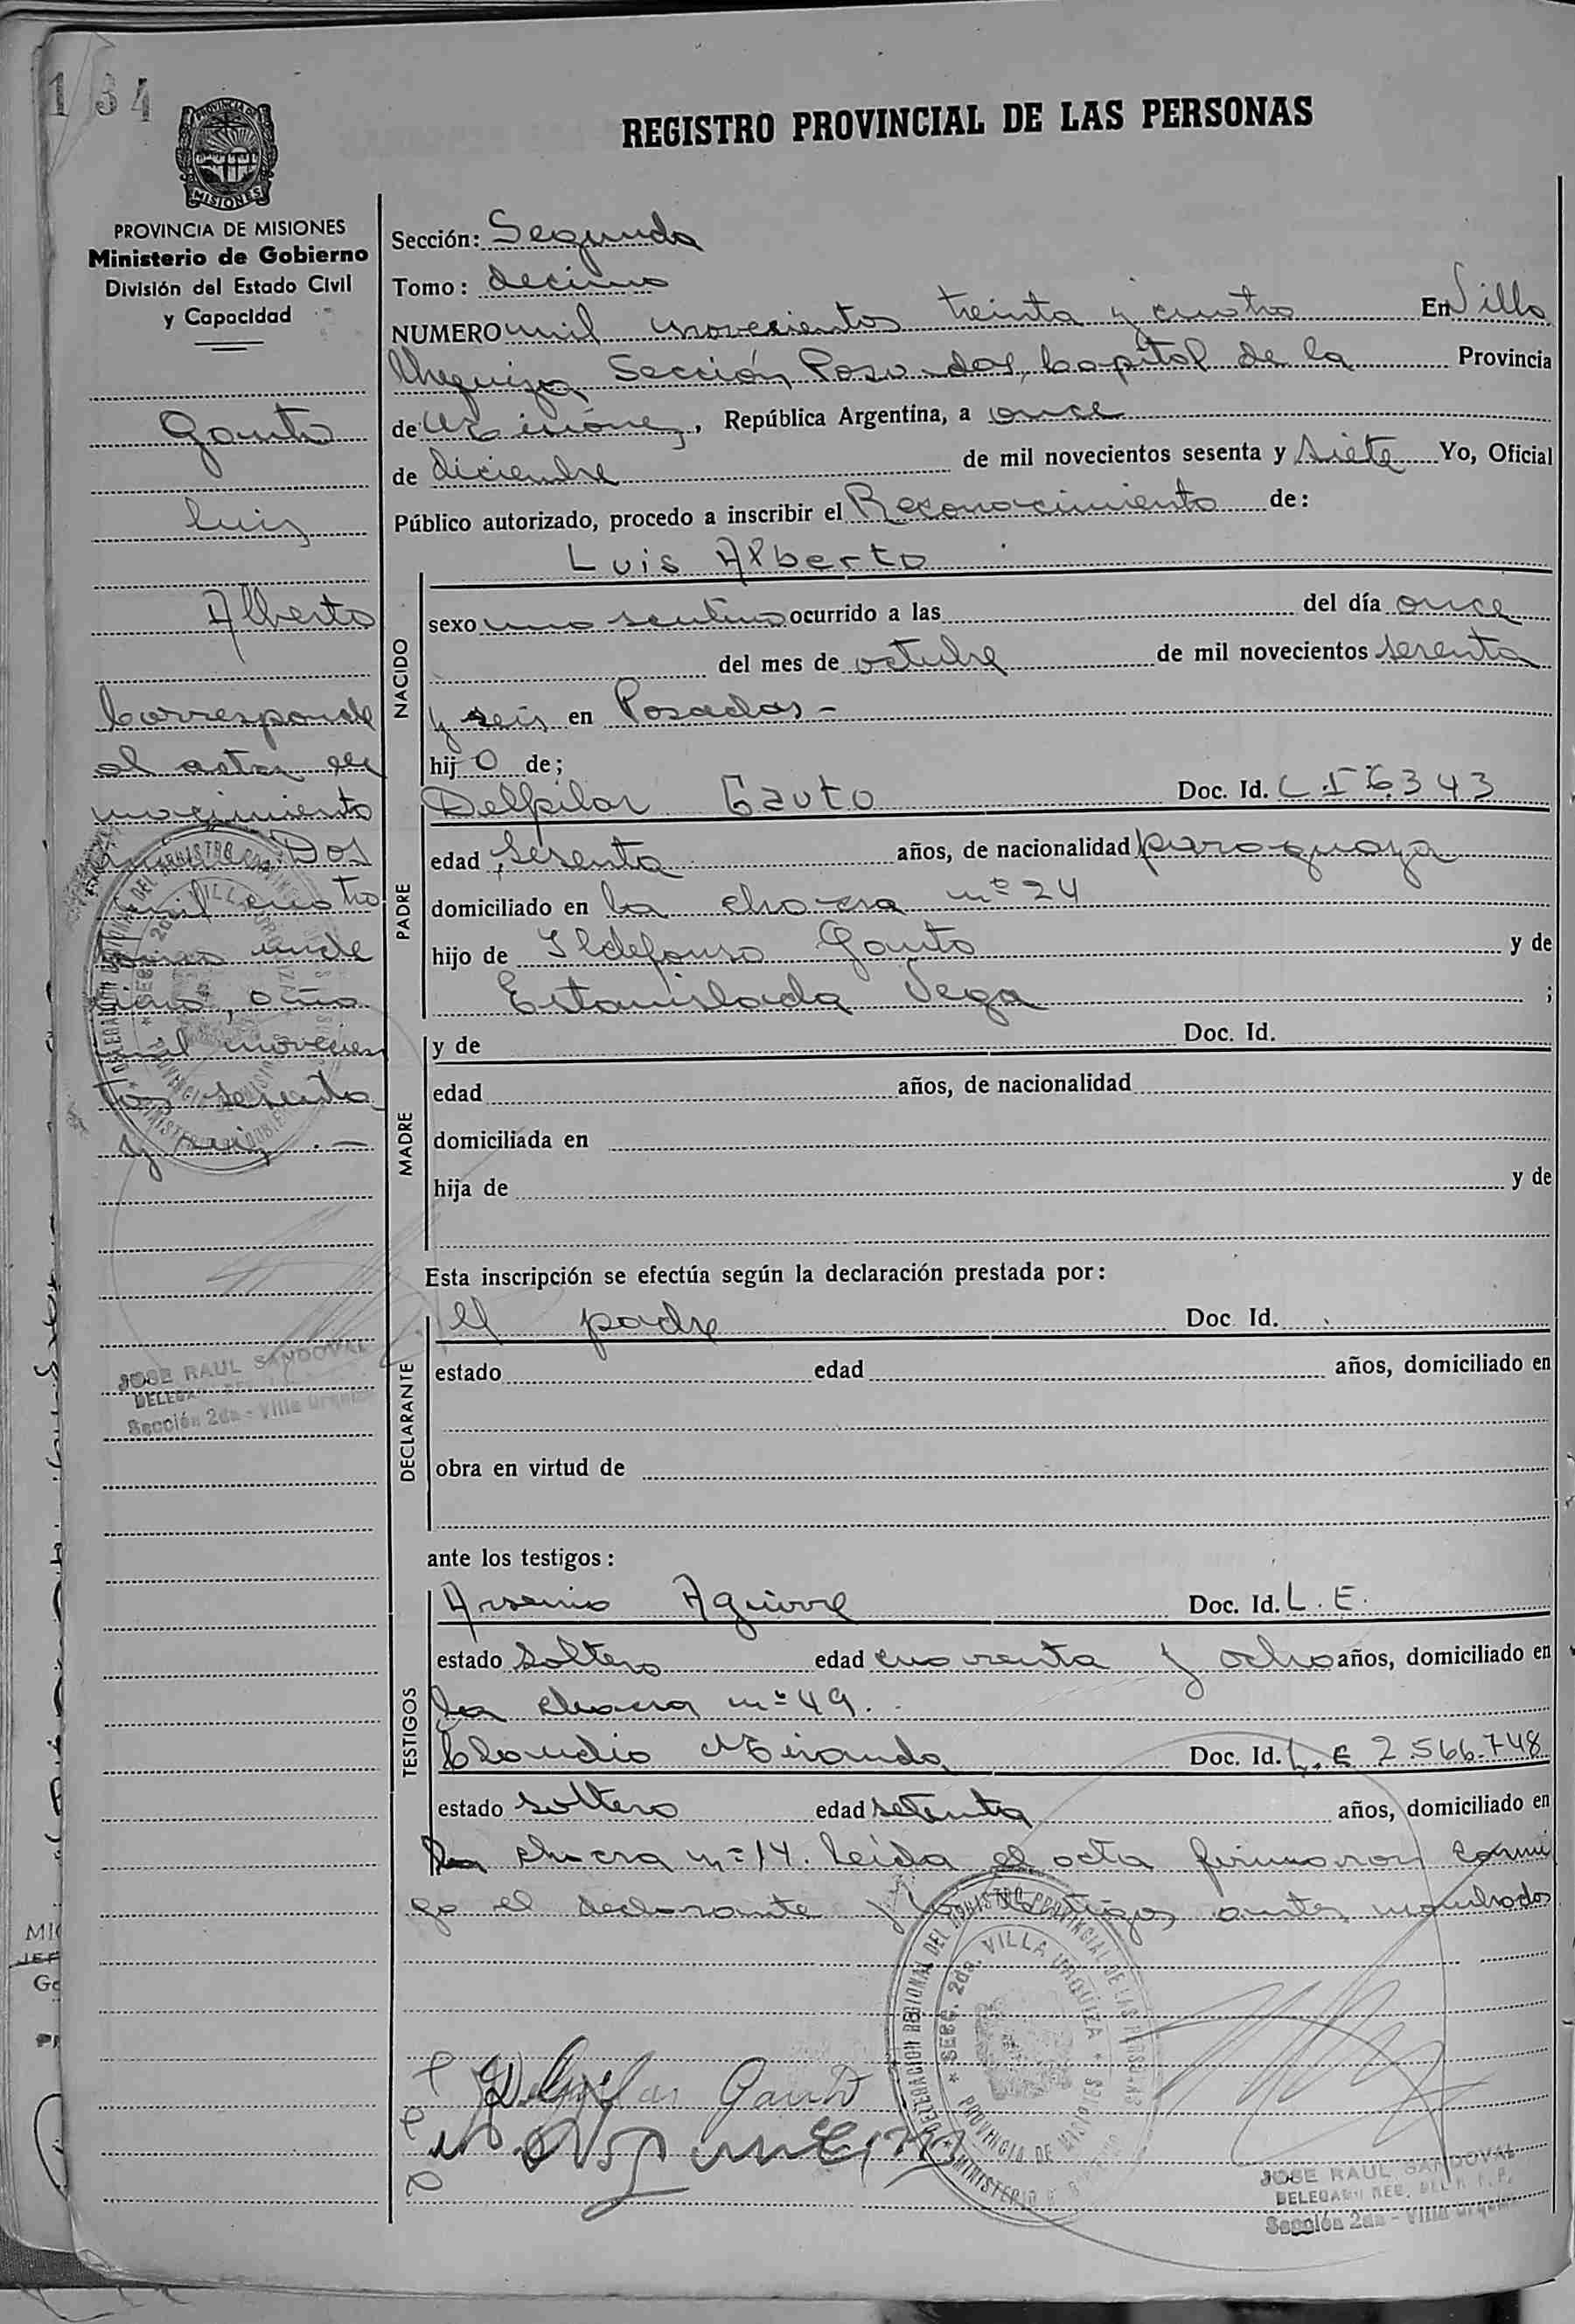 134
REGISTRO PROVINCIAL DE LAS PERSONAS
MISIONES
PROVINCIA DE MISIONES
Ministerio de Gobierno
División del Estado Civil
y Capacidad
Gauto
Luis
Alberto
Corresponde
al acta de
nacimiento
Dos
mil cuatro
año
mil novecien
tos sesenta
y seis.-
JOSE RAUL SANDOVAL
Sección 2da - Villa Urquiza
Sección: Segunda
Tomo: decimo
NUMERO mil novecientos treinta y cuatro En Villa
Urquiza Sección Posadas, Capital de la Provincia
de Misiones, República Argentina, a once
de diciembre de mil novecientos sesenta y siete Yo, Oficial
Público autorizado, procedo a inscribir el Reconocimiento de:
NACIDO
Luis Alberto
sexo masculino ocurrido a las del día once
del mes de octubre de mil novecientos sesenta
y seis en Posadas-
hijo de;
PADRE
Delpilar Gauto Doc. Id. C.I 6.343
edad sesenta años, de nacionalidad paraguaya
domiciliado en la chacra nº 24
hijo de Ildefonso Gauto y de
Estanislada Vega ;
MADRE
y de Doc. Id.
edad años, de nacionalidad
domiciliada en
hija de y de
Esta inscripción se efectúa según la declaración prestada por:
DECLARANTE
el padre Doc Id.
estado edad años, domiciliado en
obra en virtud de
ante los testigos:
TESTIGOS
Arsenio Aguirre Doc. Id. L.E.
estado soltero edad cuarenta y ocho años, domiciliado en
la chacra nº 49.
Claudio Miranda Doc. Id. L.E 2.566.748
estado soltero edad setenta años, domiciliado en
la chacra nº 14. Leida el acta firmaron conmi
go el declarante y los testigos antes nombrados
DELEGACION REGIONAL DEL REGISTRO PROVINCIAL DE LAS PERSONAS
SECC. 2da. VILLA URQUIZA
PROVINCIA DE MISIONES
MINISTERIO DE GOBIERNO
Delpilar Gauto
JOSE RAUL SANDOVAL
DELEGADO REG. DEL R. P. P.
Sección 2da - Villa Urquiza